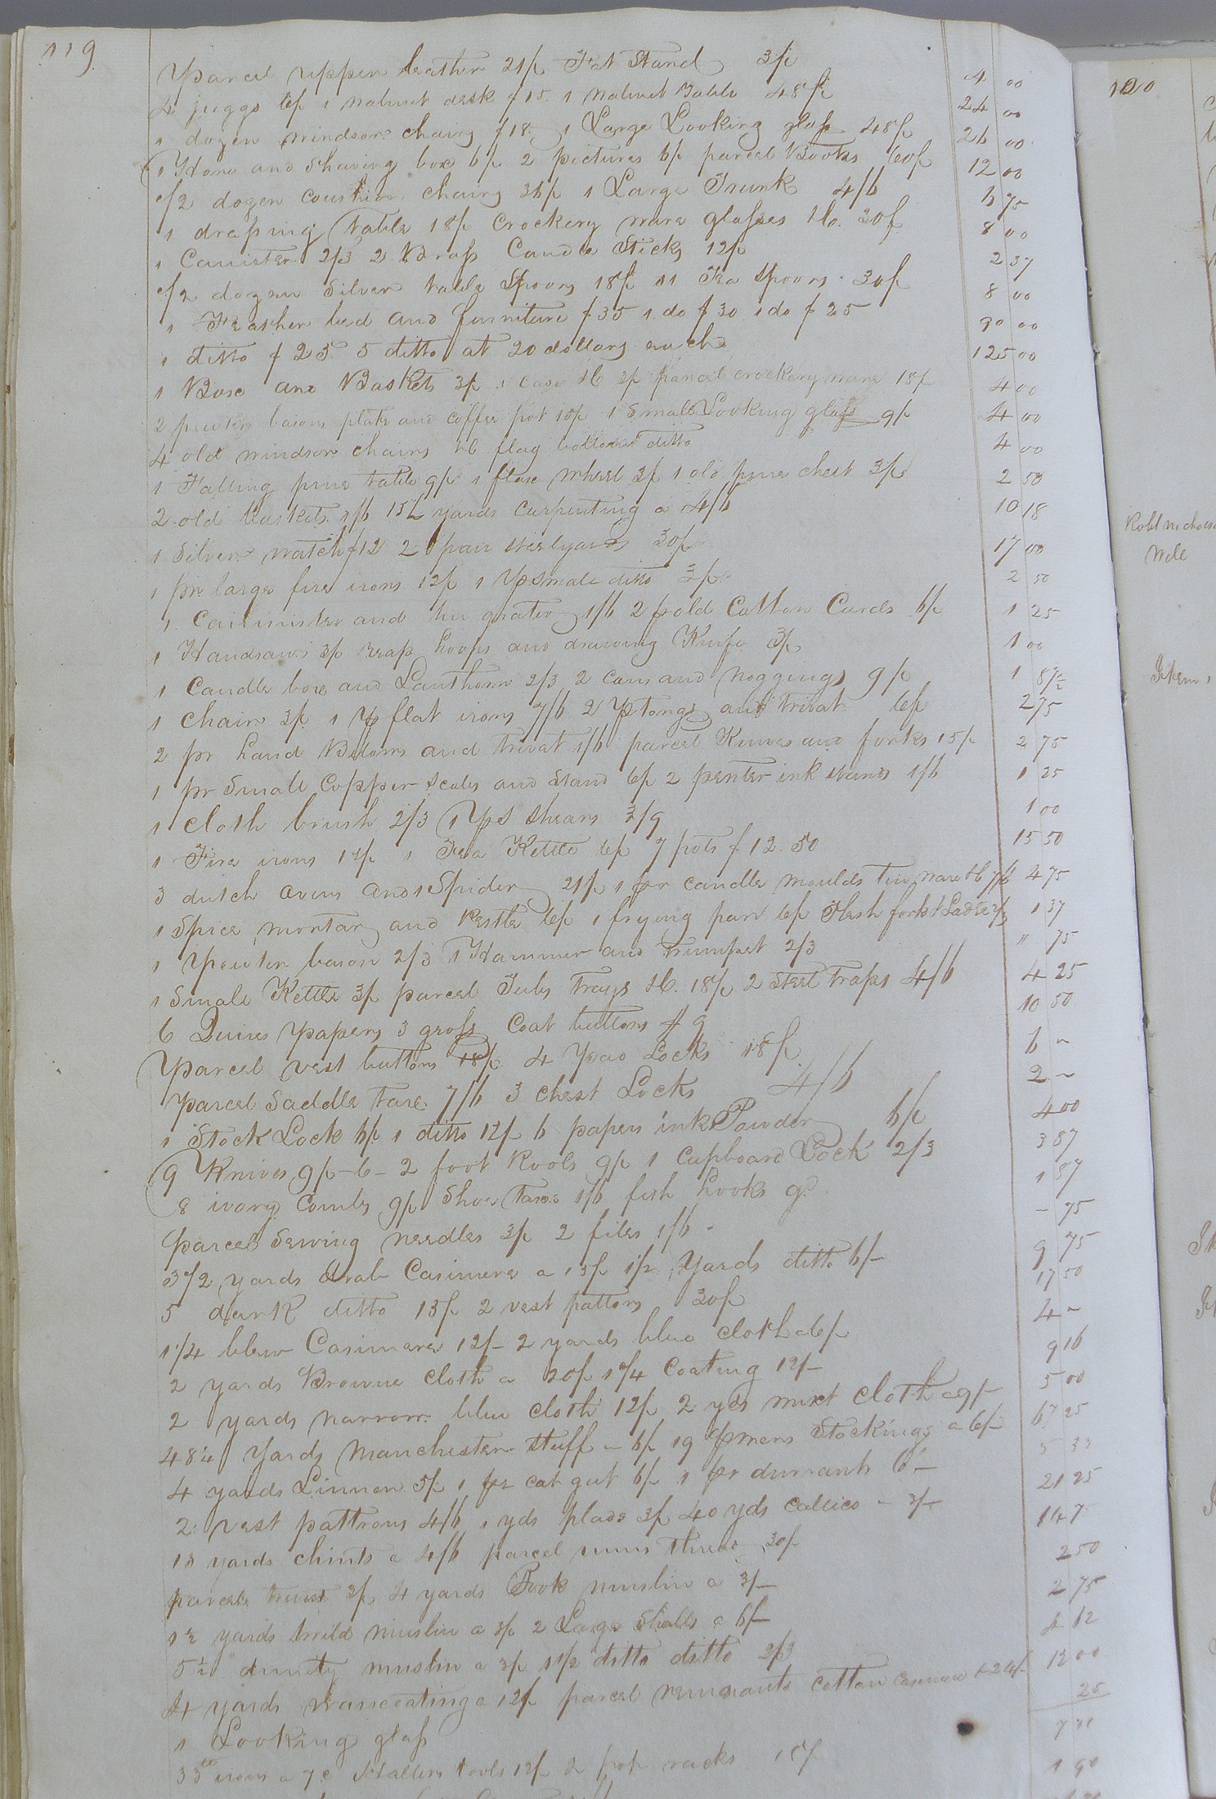 119
Parcel upper leather 21/ Fat Stand 3/ 4 00
4 juggs 6/ 1 walnut desk $15. 1 walnut Table 48/ 24 00
1 dozen windsor chairs $18 1 Large Looking glass 48/ 26 00
1 Hone and Shaving box 6/ 2 pictures 6/ parcel Books 60/ 12 00
1/2 dozen coushion chairs 36/ 1 Large Trunk 4/6 6 75
1 dressing table 18/ Crockery ware glasses &c. 30/ 8 00
1 Canister 2/3 2 Brass Candle Sticks 12/ 2 37
1/2 dozen Silver table Spoons 18/ 11 Tea Spoons 30/ 8 00
1 Feather bed and furniture $35 1 do $30 1 do $25 90 00
1 ditto $25 5 ditto at 20 dollars each 125 00
1 Box and Baskets 3/ 1 case &c 3/ parcel crockery ware 18/ 4 00
2 pewter basons plate and coffee pot 15/ 1 Small Looking glass 9/ 4 00
4 old windsor chairs &c flag bottom ditto 4 00
1 Falling pine table 9/ 1 flax wheel 3/ 1 old pine chest 3/ 2 50
2 old baskets 1/6 13 1/2 yards Carpenting a 4/6 10 18
1 Silver watch $12 2 pair steelyards 30/ 17 00
1 pr large fire irons 12/ 1 pr Small ditto 3/ 2 50
1 Cannister and tin grater 1/6 2 pr old Cotton Cards 6/ 1 25
1 Handsaw 3/ reap hoops and drawing Knife 3/ 1 00
1 Candle box and Lanthorn 2/3 2 cans and noggings 9/ 1 87 1/2
1 chair 3/ 1 pr flat irons 7/6 2 pr tongs and trivat 6/ 2 75
2 pr hand Bellows and trivat 1/6 parcel Knives and forks 15/ 2 75
1 pr Small Copper Scales and Stand 6/ 2 pewter ink stands 1/6 1 25
1 cloth brush 2/3 1 pr Shears 3/9 1 00
1 Fire irons 12/ 1 Tea Kettle 6/ 7 pots $12.50 15 50
3 dutch ovens and 1 Spider 21/ 1 pr candle moulds tin ware &c 7/6 4 75
1 Spice mortar and Pestle 6/ 1 frying pan 6/ Flesh fork & Ladle 2/3 1 37
1 Pewter bason 2/3 1 Hammer and trumpet 2/3 " 75
1 Small Kettle 3/ parcel Tubs trays &c. 18/ 2 Steel traps 4/6 4 25
6 Quires papers 3 gross Coat buttons $9 10 50
Parcel vest buttons 18/ 4 Pad Locks 18/ 6 ~
Parcel Saddle tare 7/6 3 chest Locks 4/6 2 ~
1 Stock Lock 6/ 1 ditto 12/ 6 papers ink Powder 6/ 4 00
9 Knives 9/-6-2 foot Rools 9/ 1 Cupboard Lock 2/3 3 87
8 ivory Combs 9/ Shoe Taxs 1/6 fish hooks 9d 1 87
Parcel Sewing needles 3/ 2 files 1/6 - 75
3 1/2 yards drab Casimere a 13/ 1 1/2 yards ditto 6/ 9 75
5 dark ditto 13/ 2 vest pattons 30/ 17 50
1 1/4 blew Casimere 12/ 2 yards blue cloth a 6/ 4 ~
2 yards Browne cloth a 20/ 1 3/4 Coating 12/ 9 16
2 yards narrow blue cloth 12/ 2 yds mixt cloth a 9/ 5 00
48 1/4 yards Manchester Stuff a 6/ 19 pr mens Stockings a 6/ 67 25
4 yards Linnen 5/ 1 pr cat gut 6/ 1 pr durrants 6/ 5 33
2 vest pattrons 4/6 1 yds plaid 3/ 40 yds callico a 3/ 21 25
13 yards chints a 4/6 parcel thread 30/ 14 75
parcels twist 3/ 4 yards Book muslin a 3/ 2 50
1 1/2 yards twild muslin a 3/ 2 Large Shalls a 6/ 2 75
5 1/2 dimety muslin a 3/ 1 1/2 ditto ditto 2/3 4 12
4 yards waiscoating a 12/ parcel remnants cotton 24/ 12 00
1 Looking glass 25
irons a 7c tools 12/ 2 racks 1 90
120
Robt
Will
Item 1